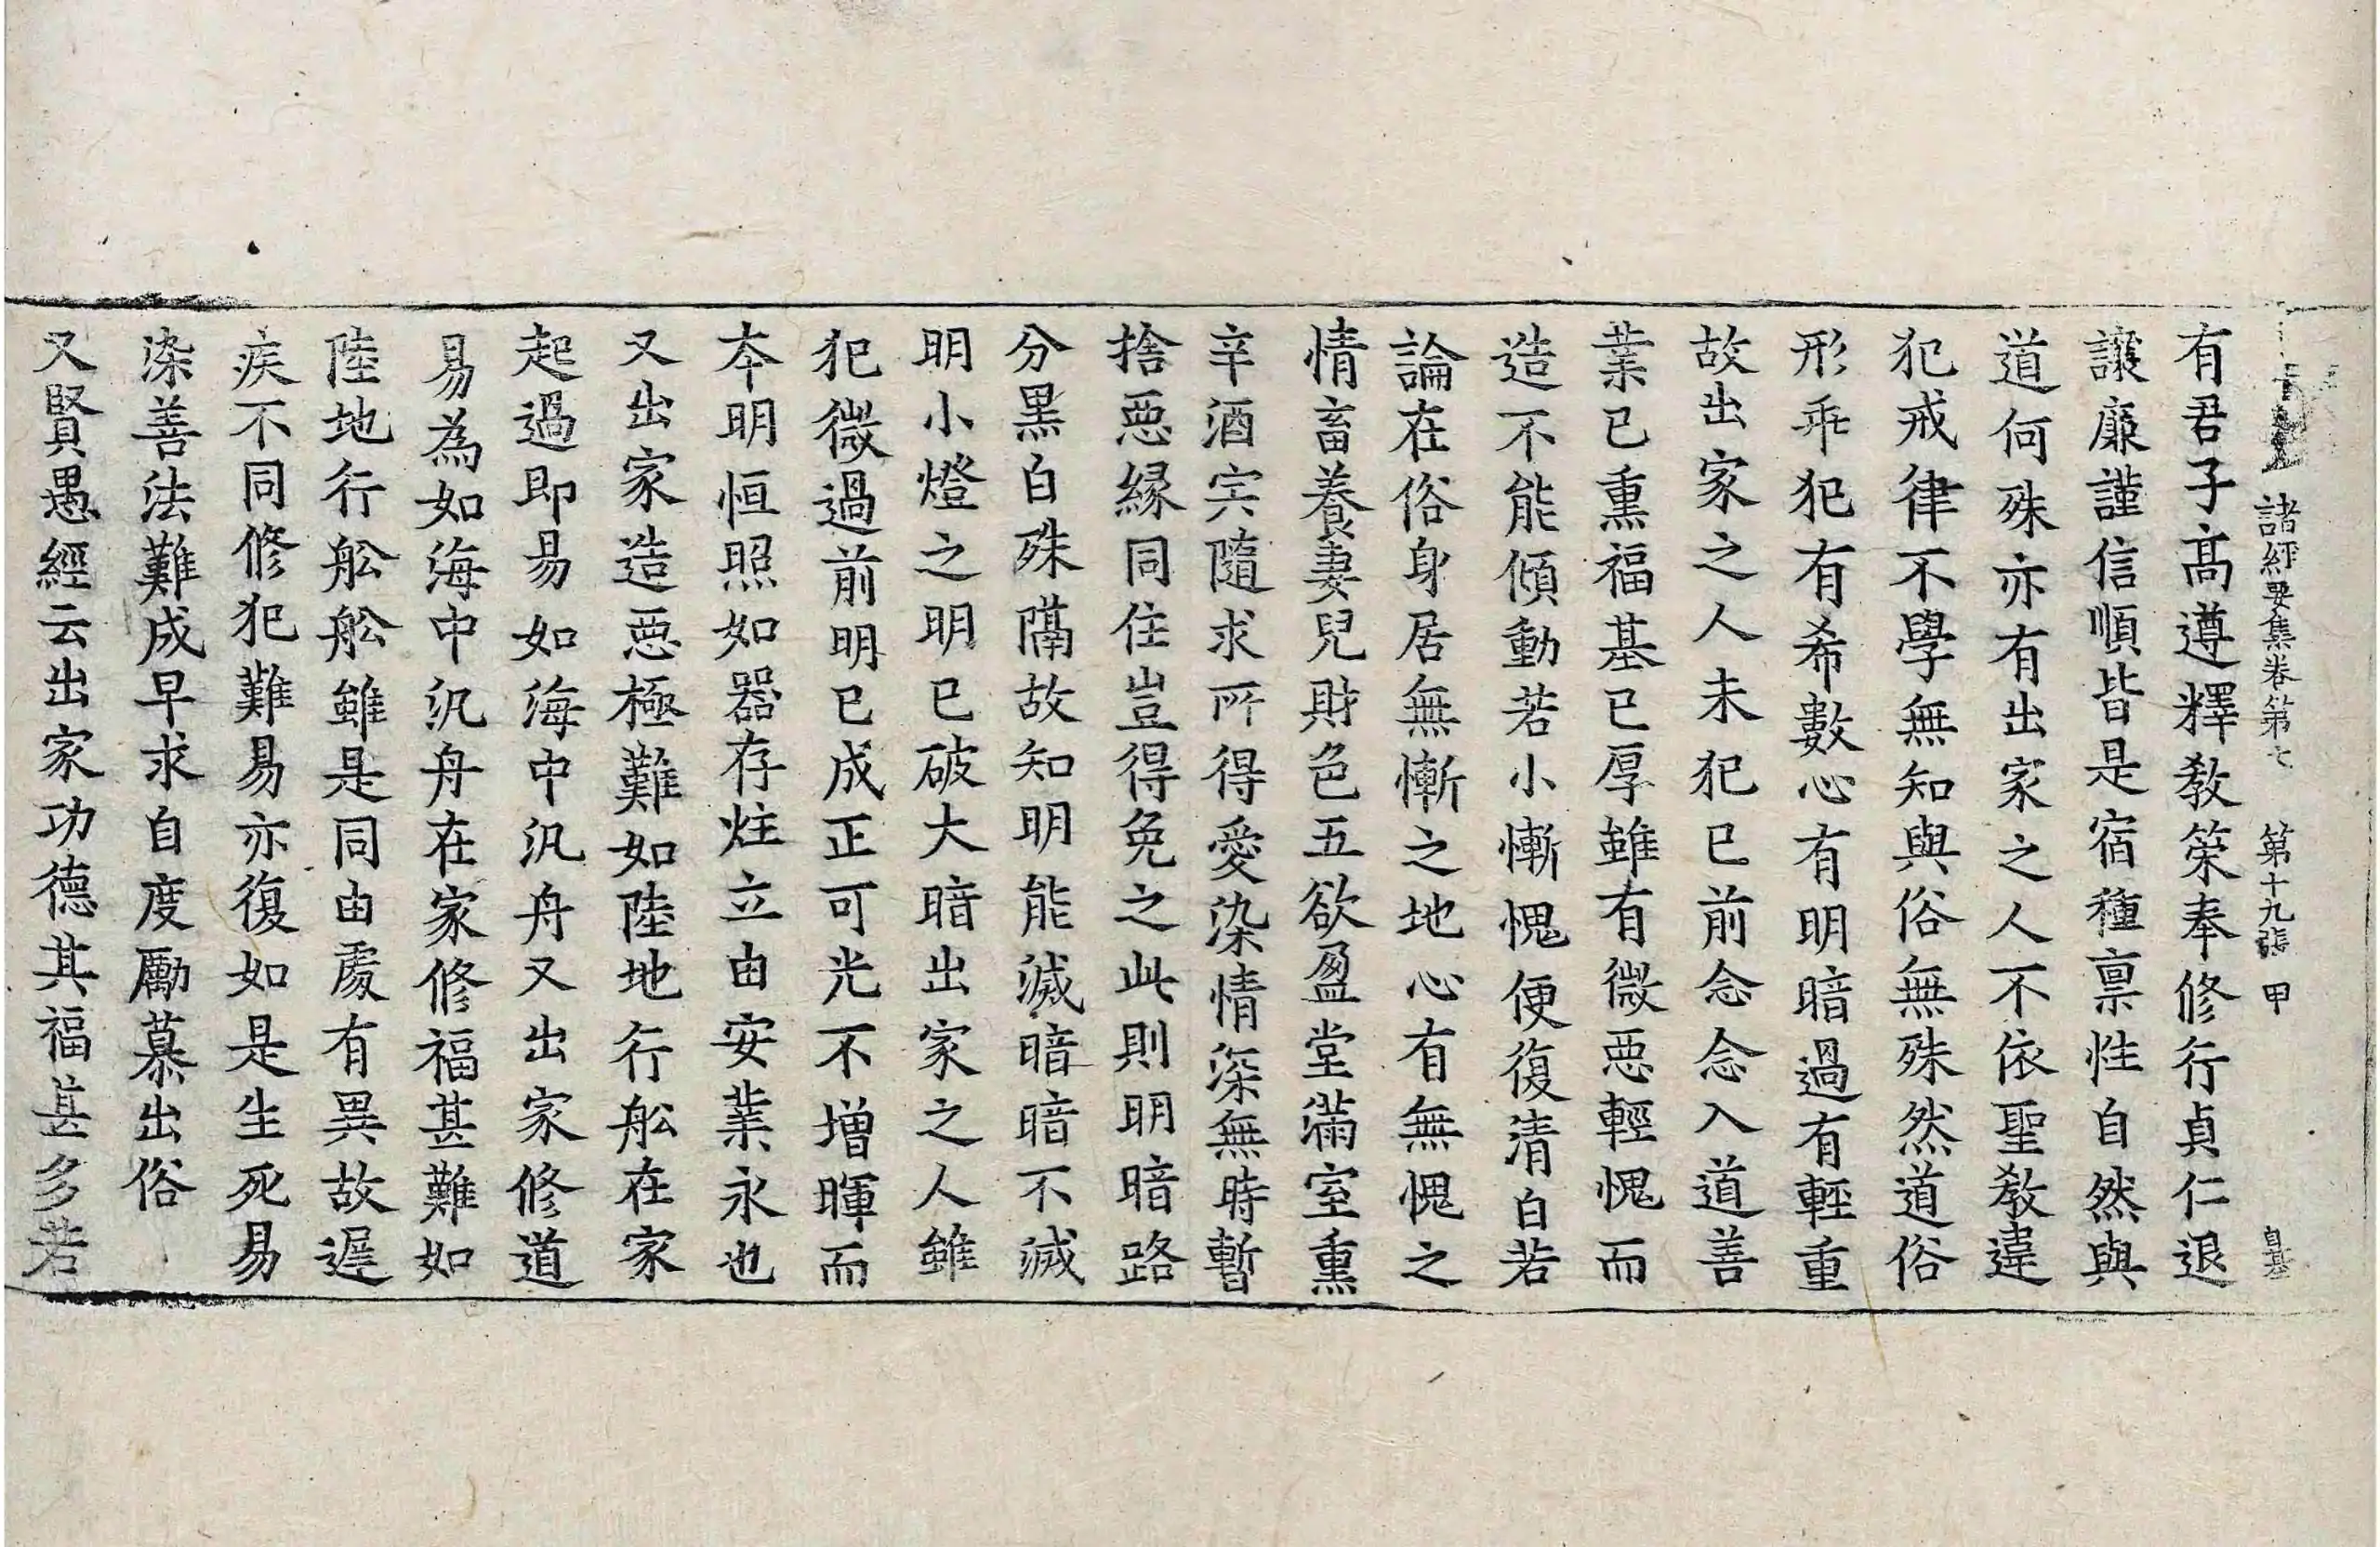 諸經要集卷第七 第十九張 甲
有君子高遵釋敎策奉修行貞仁退
讓廉謹信順皆是宿種稟性自然與
道何殊亦有出家之人不依聖敎違
犯戒律不學無知與俗無殊然道俗
形乖犯有希數心有明暗過有輕重
故出家之人未犯已前念念入道善
業已熏福基已厚雖有微惡輕愧而
造不能傾動若小慚愧便復清白若
論在俗身居無慚之地心有無愧之
情畜養妻兒財色五欲盈堂滿室熏
辛酒宍隨求所得愛染情深無時暫
捨惡緣同住豈得免之此則明暗路
分黑白殊隔故知明能滅暗暗不滅
明小燈之明已破大暗出家之人雖
犯微過前明已成正可光不增暉而
本明恒照如器存炷立由安業永也
又出家造惡極難如陸地行舩在家
起過即易如海中汎舟又出家修道
易為如海中汎舟在家修福甚難如
陸地行舩舩雖是同由處有異故遲
疾不同修犯難易亦復如是生死易
染善法難成早求自度勵慕出俗
又賢愚經云出家功德其福甚多若